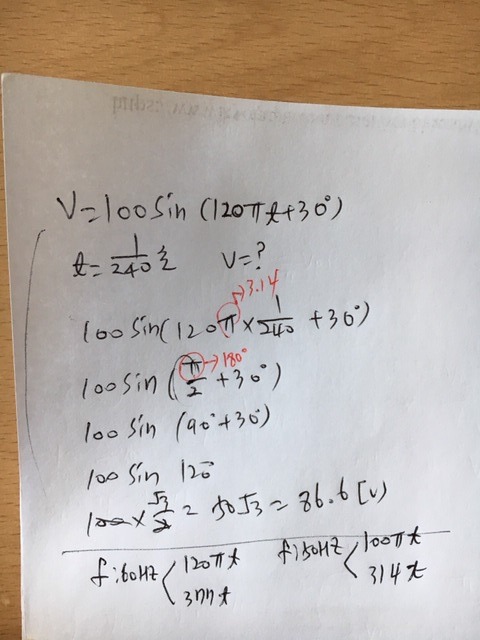 V=100 sin (120πt+30°)
t=1/240초 V=?
→3.14
100 sin(120π×1/240 +30°)
100 sin (π/2→180° +30°)
100 sin (90°+30°)
100 sin 120°
100×√3/2 = 50√3 = 86.6 [v]
f:60Hz < 120πt f:50Hz < 100πt
377t 314t